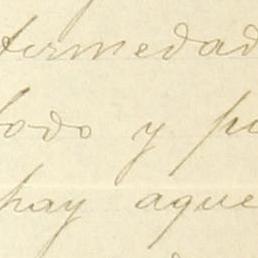 fermedad
todo y pu
hay aque